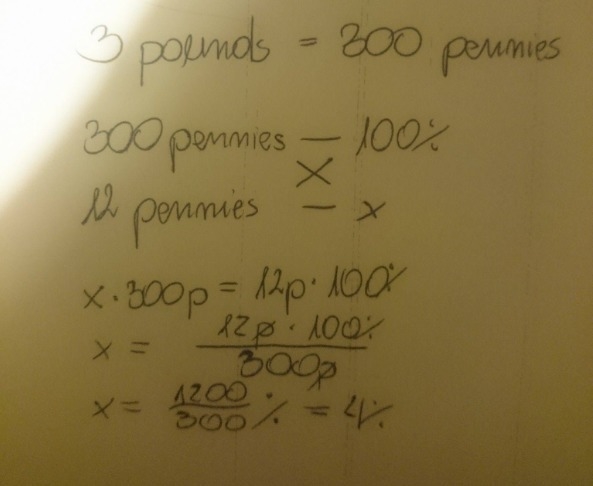 3 pounds = 300 pennies
300 pennies — 100%
X
12 pennies — x
x · 300p = 12p · 100%
x = 12p · 100% / 300p
x = 1200 / 300 % = 4%